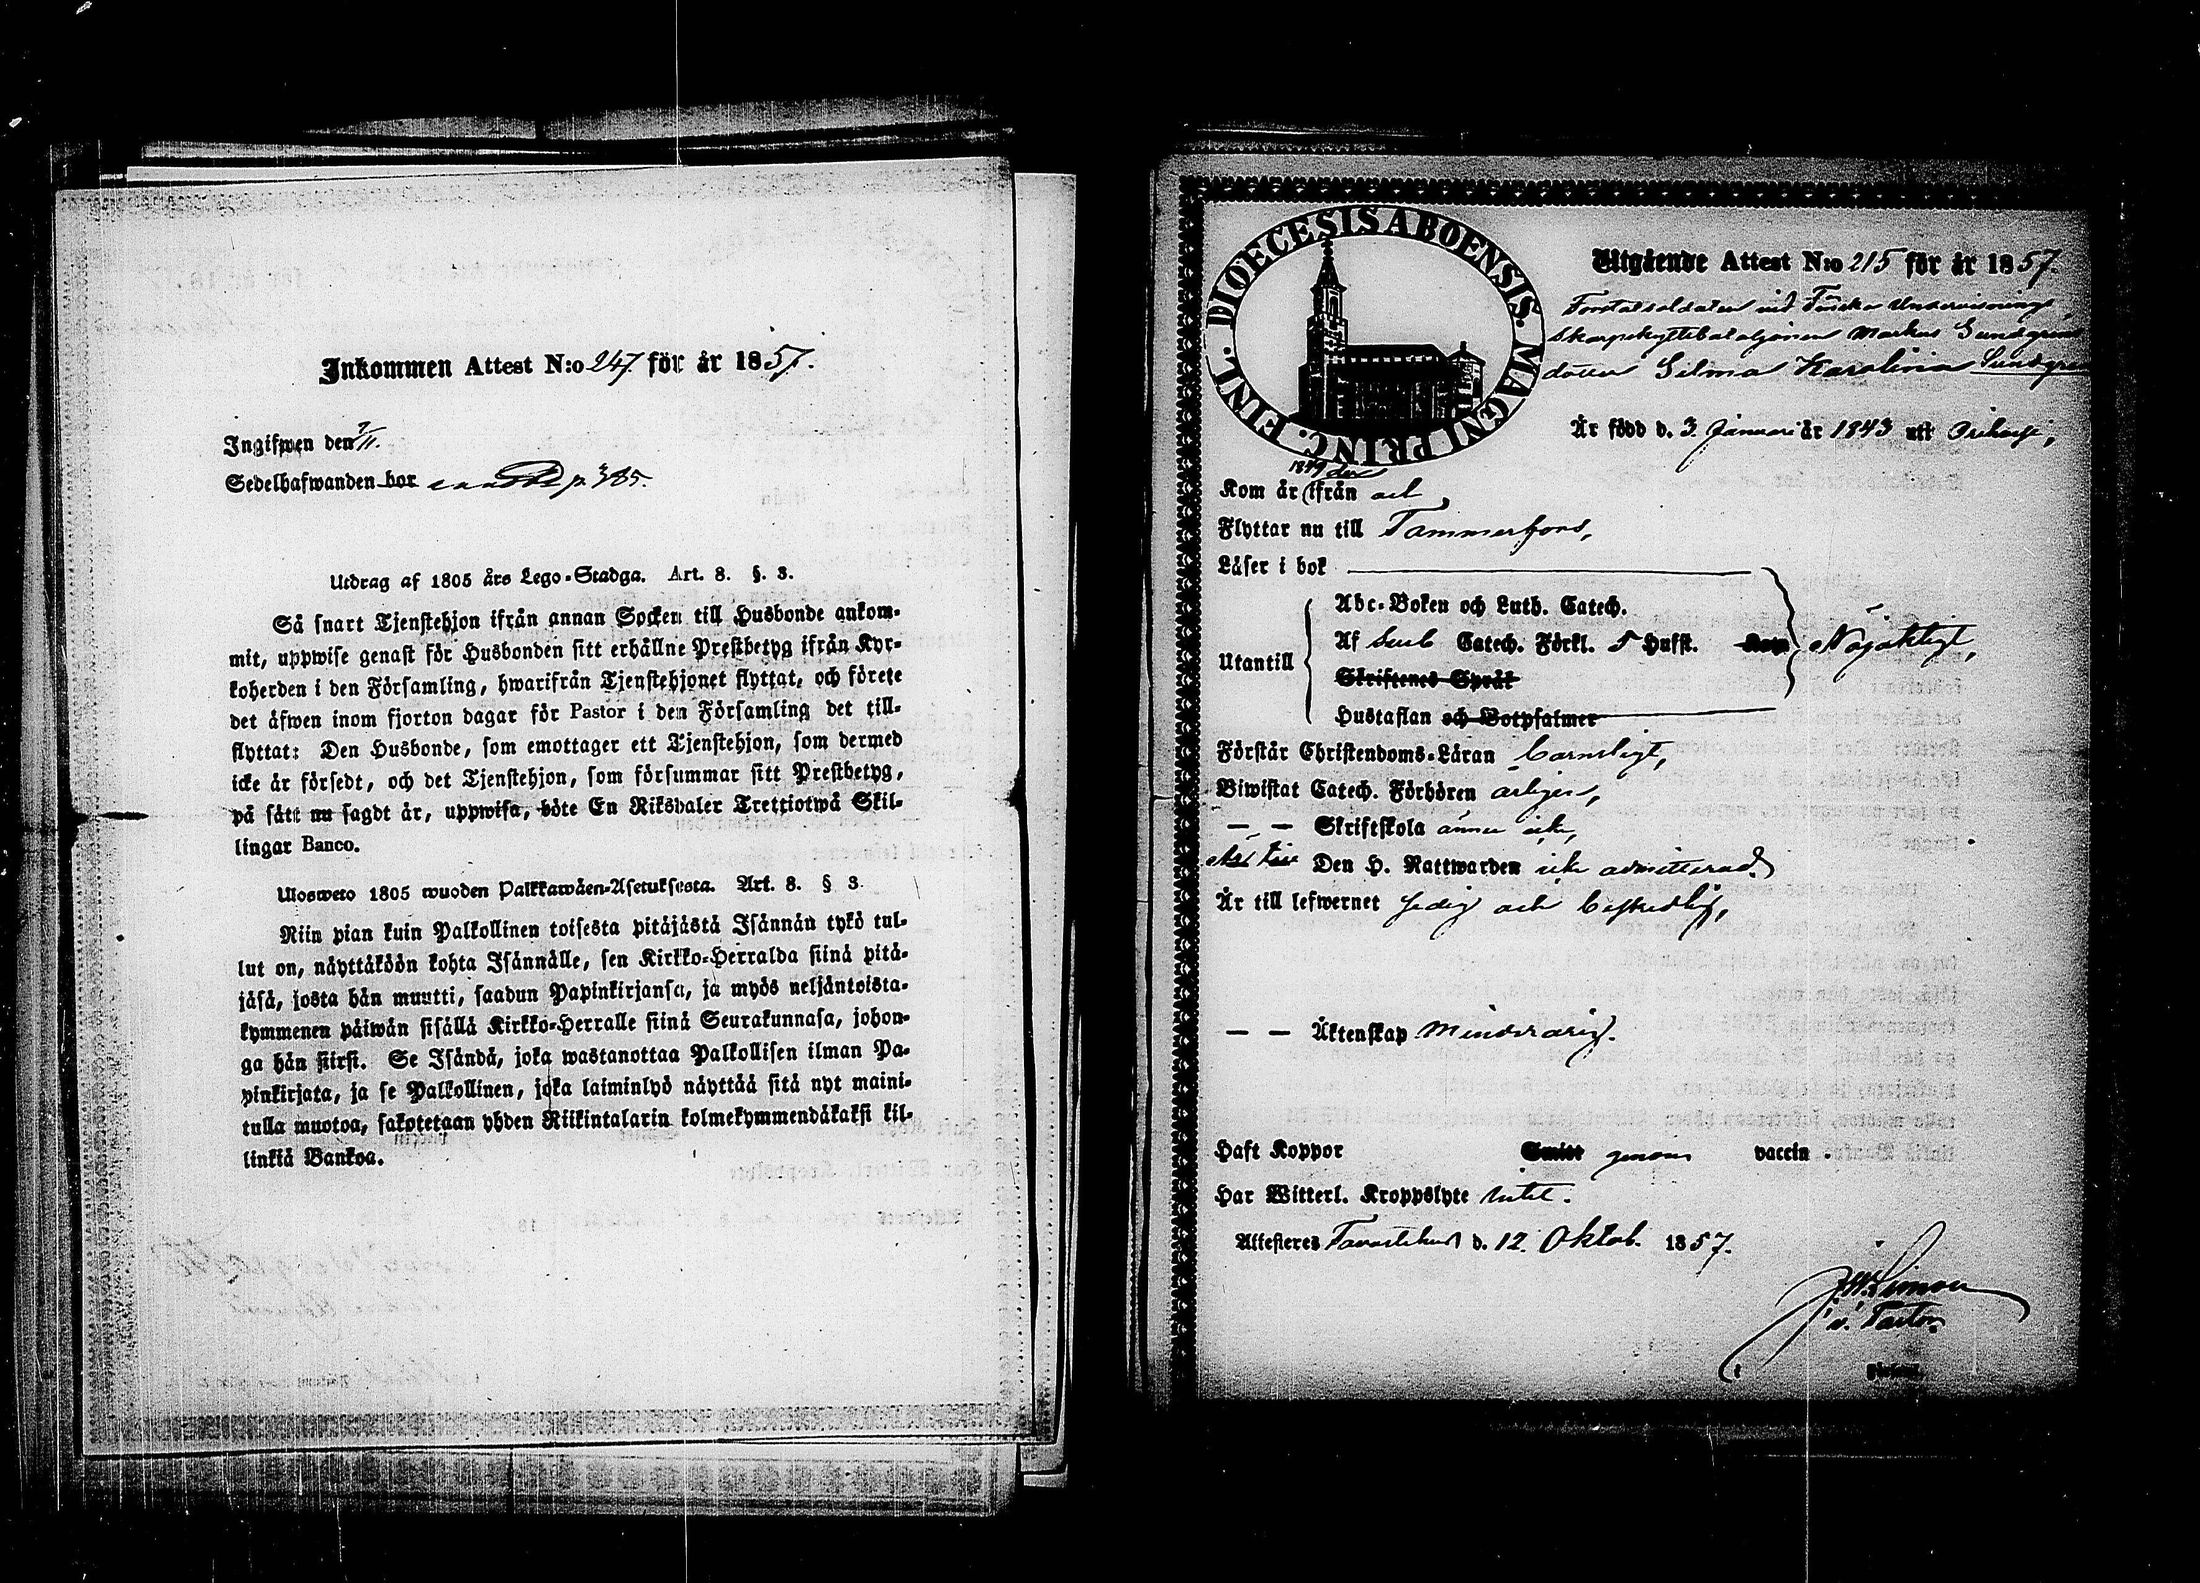 Inkommen Attest N:o 247 för år 1857.
Ingifwen den 7/11.
Sedelhafwanden bor p. 385.
Utdrag af 1805 års Lego-Stadga. Art. 8. §. 3.
Så snart Tjenstehjon ifrån annan Socken till Husbonde ankom-
mit, uppwise genast för Husbonden sitt erhållne Prestbetyg ifrån Kyr-
koherden i den Församling, hwarifrån Tjenstehjonet flyttat, och förete
det äfwen inom fjorton dagar för Pastor i den Församling det till-
flyttat: Den Husbonde, som emottager ett Tjenstehjon, som dermed
icke är försedt, och det Tjenstehjon, som försummar sitt Prestbetyg,
på sätt nu sagdt är, uppwisa, böte En Riksdaler Trettiotwå Skil-
lingar Banco.
Ulosweto 1805 wuoden Palkkawäen-Asetuksesta. Art. 8. § 3.
Niin pian kuin Palkollinen toisesta pitäjästä Isännän tykö tul-
lut on, näyttäköön kohta Isännälle, sen Kirkko-Herralda siinä pitä-
jäsä, josta hän muutti, saadun Papinkirjansa, ja myös neljäntoista-
kymmenen päiwän sisällä Kirkko-Herralle siinä Seurakunnasa, johon-
ga hän siirsi. Se Isändä, joka wastanottaa Palkollisen ilman Pa-
pinkirjata, ja se Palkollinen, joka laiminlyö näyttää sitä nyt maini-
tulla muotoa, sakotetaan yhden Riikintalarin kolmekymmendäkaksi kil-
linkiä Bankoa.
DIOECESIS ABOENSIS. MAGNI PRINC. FINL.
Utgående Attest N:o 215 för år 1857.
Torstatsoldaten vid Finska Undervisnings
Skarpskyttebataljonen Markus Sundgrens
dotter Selma Karolina Sundgren
År född d. 3. Januari år 1843 uti
1849 der
Kom år ifrån och
Flyttar nu till Tammerfors,
Läser i bok
Abc-Boken och Luth. Catech.
Utantill Af Catech. Förkl. 5 Hufst. Nöjaktigt,
Skriftenes Språk
Hustaflan och Botpsalmer
Förstår Christendoms-Läran barnsligt,
Biwistat Catech. Förhören årligen,
— — Skriftskola ännu icke,
Den H. Nattwarden icke admitterad.
Är till lefwernet sedig och beskedlig,
— — Äktenskap minderårig.
Haft Koppor Smitt genom vaccin.
Har Witterl. Kroppslyte intet.
Attesteres Tavastehus d. 12. Oktob. 1857.
v. Pastor.